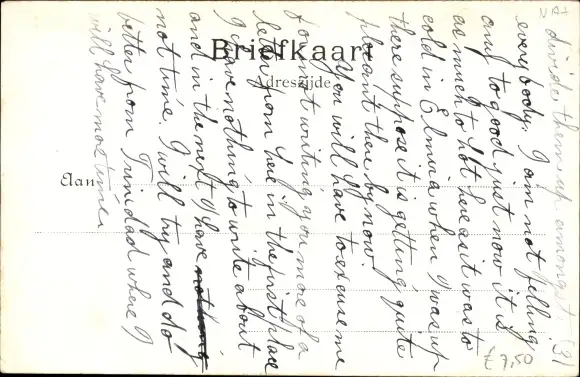 Briefkaart
Adreszijde
Aan
(3)
divide them up amongst
everybody. I am not felling
any to good just now it is
as much to hot here as it was to
cold in Elmira when I was up
there suppose it is getting quite
pleasant there by now.
You will have to excuse me
for not writing you more of a
letter from here in the first place
I have nothing to write about
and in the next I have nothing
not time I will try and do
better from Trinidad where I
will have more time.
£ 7,50